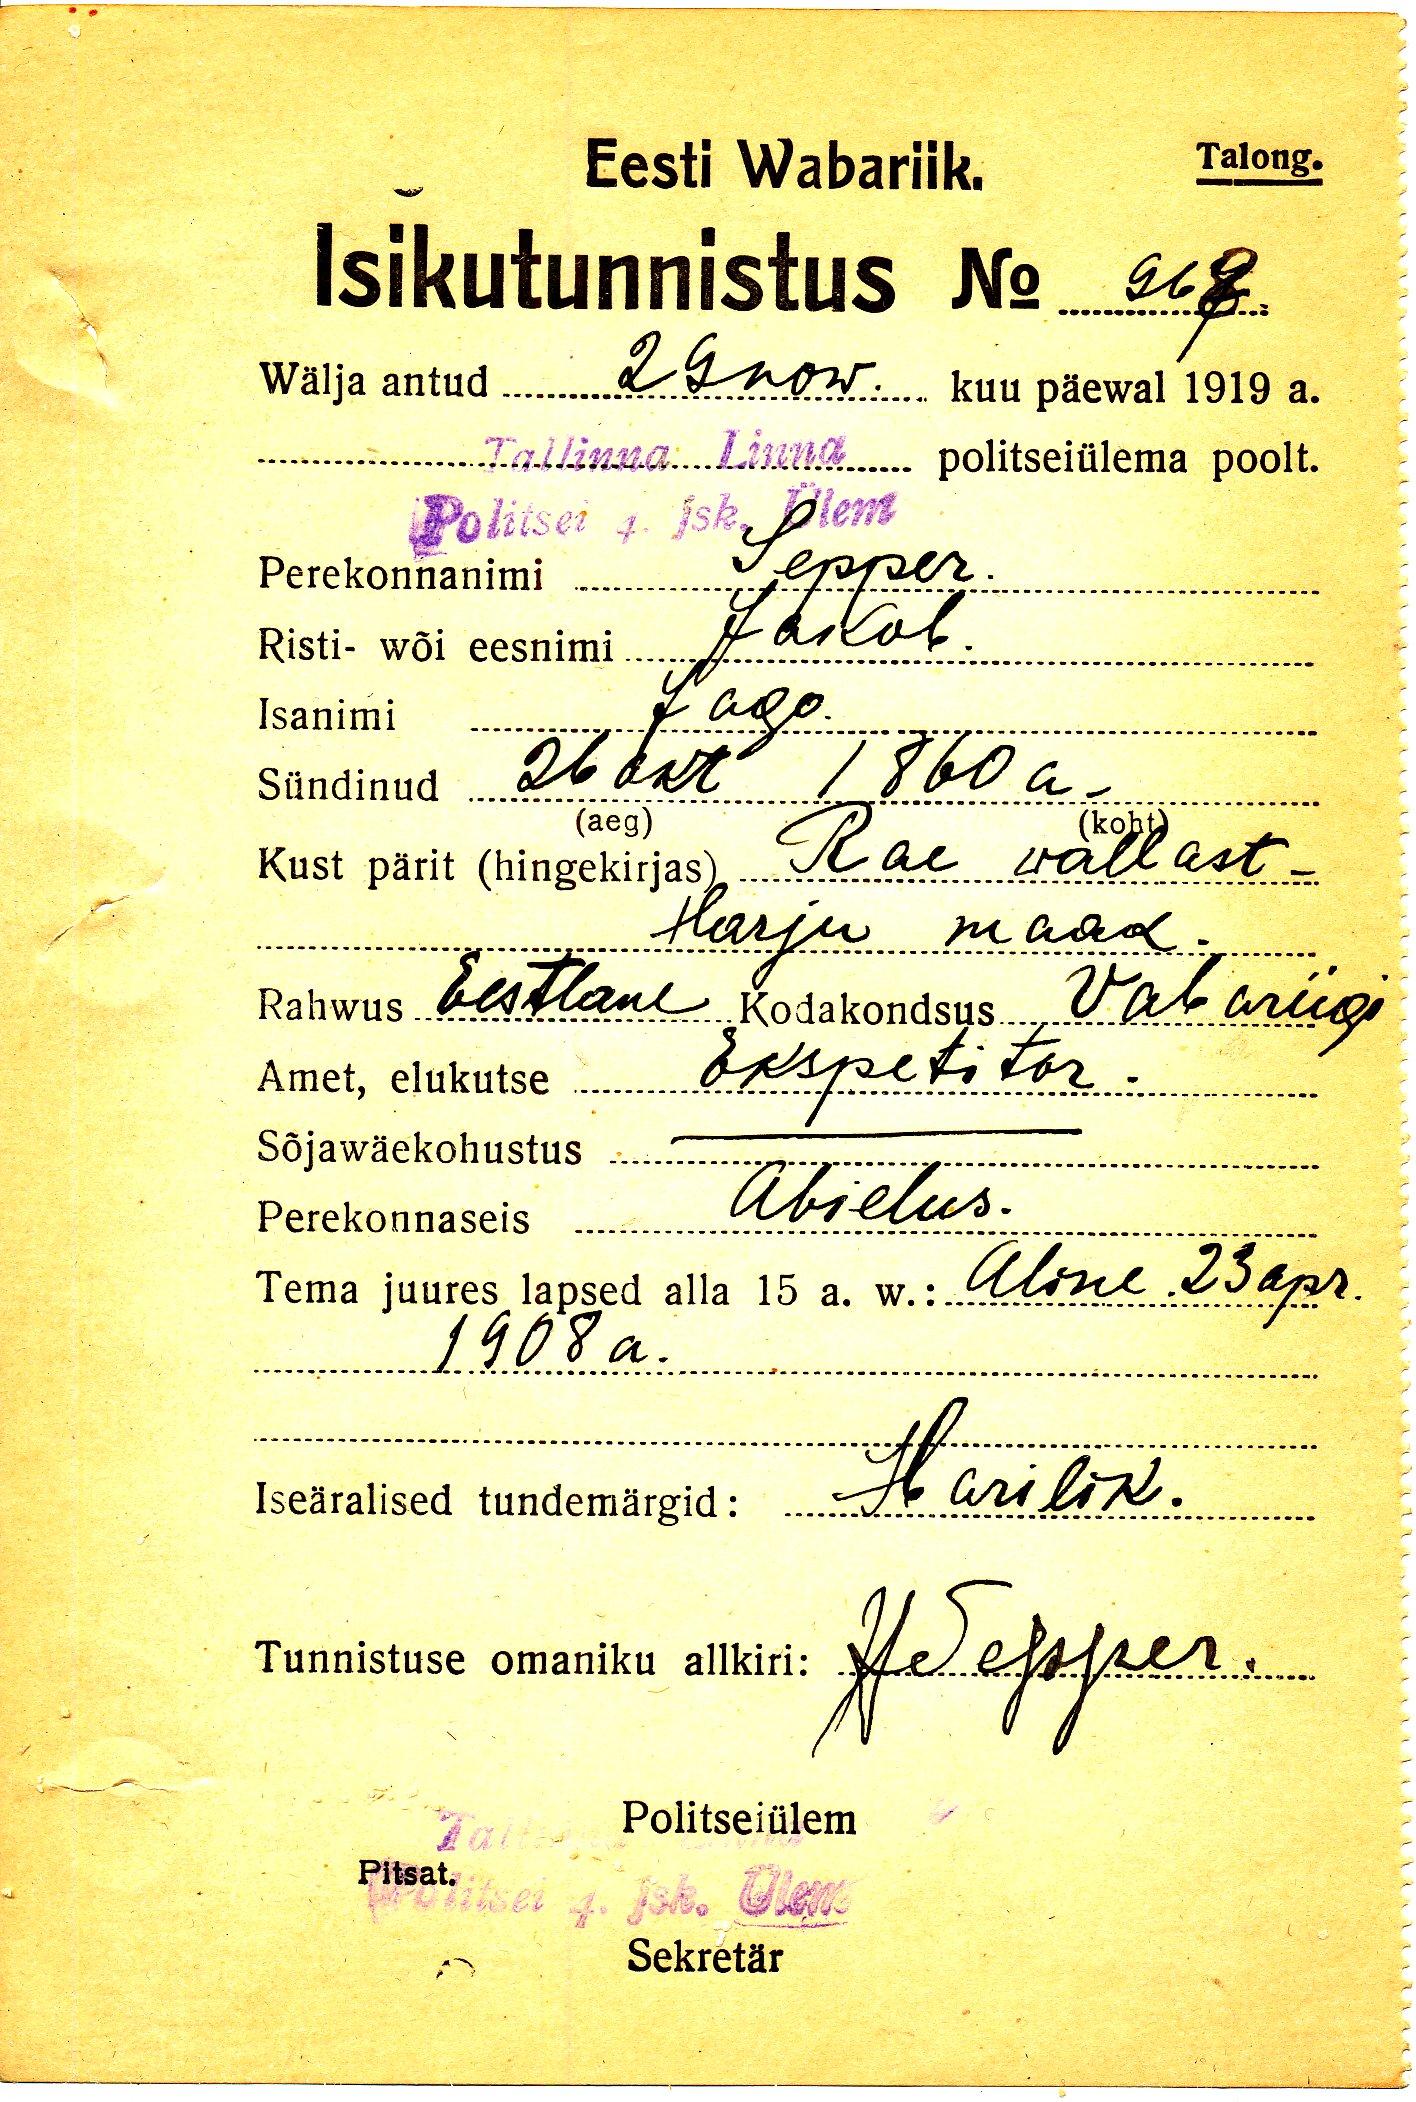 Eesti Wabariik.
Talong.
Isikutunnistus № 968.
Wälja antud 29 now. kuu päewal 1919 a.
Tallinna Linna politseiülema poolt.
Politsei 4. jsk. Ülem
Perekonnanimi Sepper.
Risti- wõi eesnimi Jakob.
Isanimi Jago.
Sündinud 26 okt 1860 a -
(aeg) (koht)
Kust pärit (hingekirjas) Rae wallast -
Harju maad.
Rahwus Eestlane Kodakondsus Vabariigi
Amet, elukutse Ekspetitor.
Sõjawäekohustus
Perekonnaseis Abielus.
Tema juures lapsed alla 15 a. w.: Aline 23 apr.
1908 a.
Iseäralised tundemärgid: Harilik.
Tunnistuse omaniku allkiri: JSepper.
Politseiülem
Tallinna Linna
Pitsat.
Politsei 4. jsk. Ülem
Sekretär